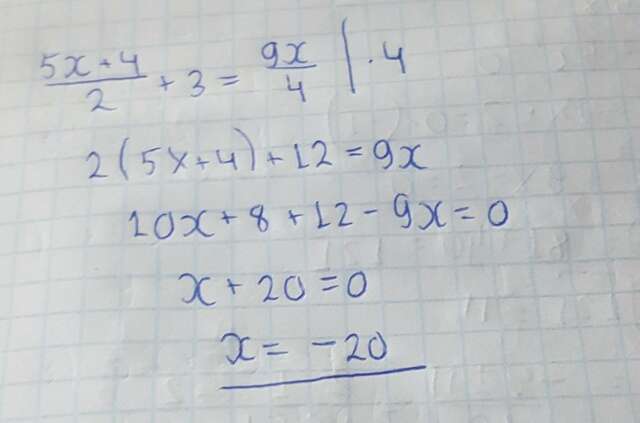 (5x+4)/2 + 3 = 9x/4 | · 4
2(5x+4)+12=9x
10x+8+12-9x=0
x+20=0
x=-20